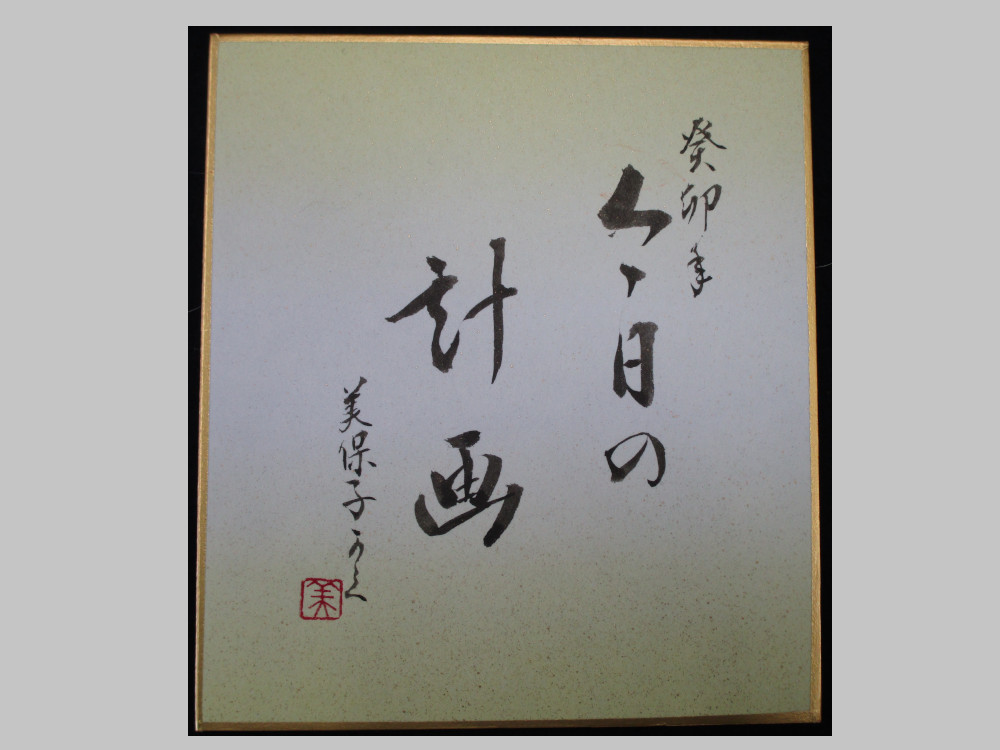 癸卯年
今日の
計画
美保子かく
美